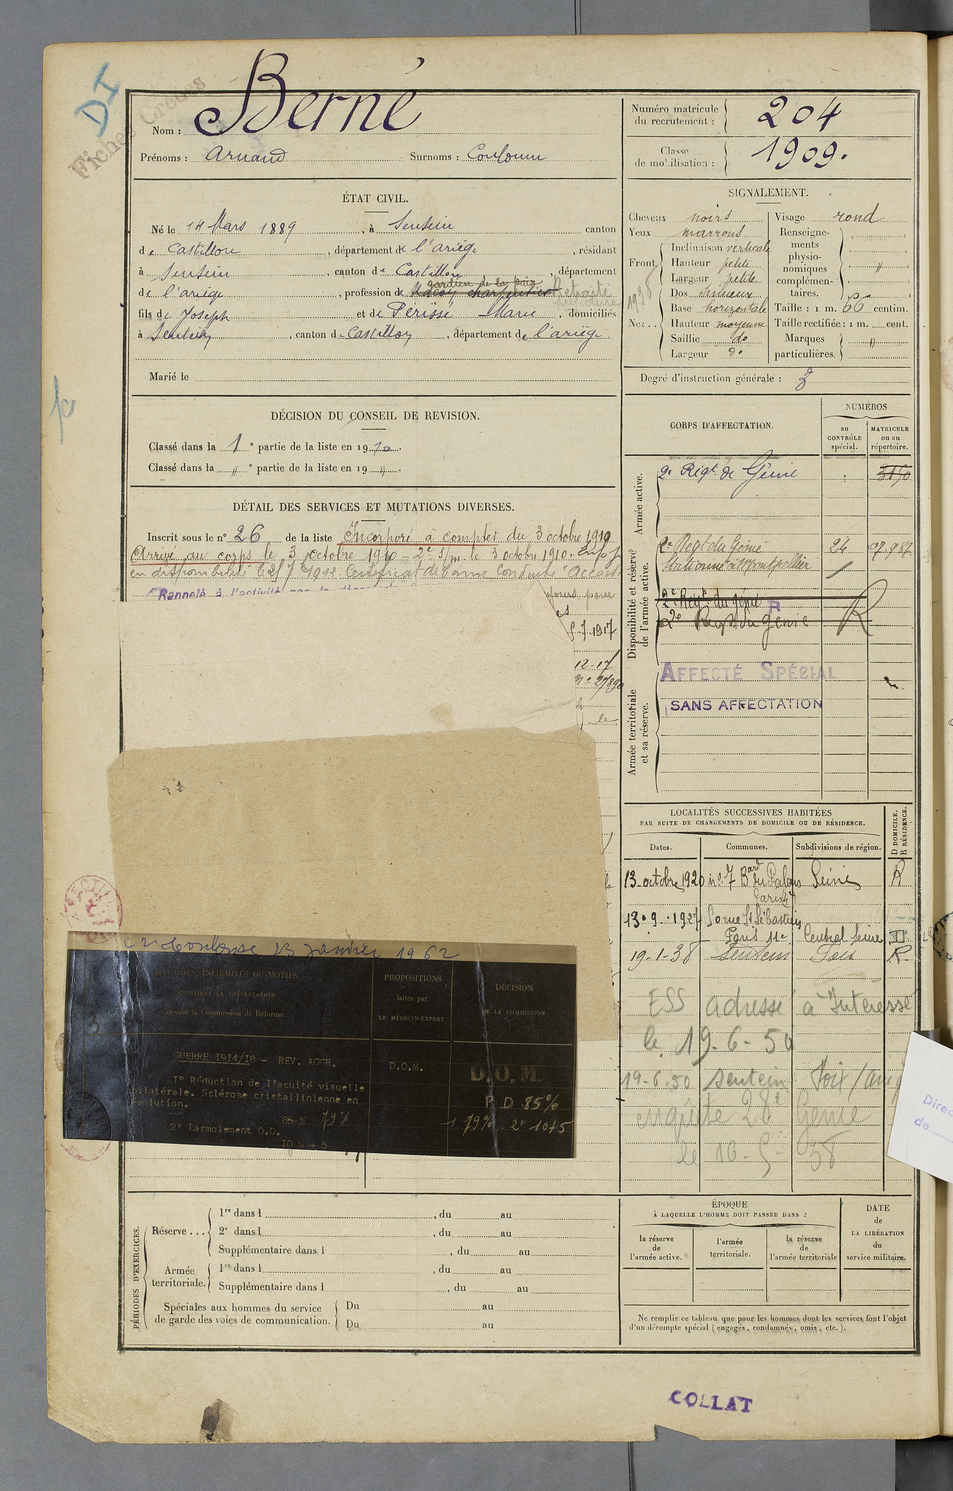 DI
Fiches Créées
Nom : Berné
Prénoms : Arnaud Surnoms : Couloum
Numéro matricule du recrutement : 204
Classe de mobilisation : 1909.
ÉTAT CIVIL.
Né le 14 Mars 1889, à Sentein canton
de Castillon, département de l'ariège, résidant
à Sentein, canton de Castillon, département
gardien de la paix
de l'ariège, profession de Maçon charpentier retraité
fils de Joseph et de Périssé Marie, domiciliés
à Sentein, canton de Castillon, département de l'ariège.
Marié le
SIGNALEMENT.
Cheveux noirs
Yeux marrons
Front. Inclinaison verticale
Hauteur petite
Largeur petite
Nez.. Dos sinueux
Base horizontale
Hauteur moyenne
Saillie do
Largeur do
Visage rond
Renseignements physionomiques complémentaires. "
Taille : 1 m. 66 centim.
Taille rectifiée : 1 m. cent.
Marques particulières. "
Degré d'instruction générale : 3
DÉCISION DU CONSEIL DE REVISION.
Classé dans la 1e partie de la liste en 1910.
Classé dans la " e partie de la liste en 19 ".
DÉTAIL DES SERVICES ET MUTATIONS DIVERSES.
Inscrit sous le n° 26 de la liste Incorporé à compter du 3 octobre 1910
Arrivé au corps le 3 octobre 1910 - 2e S/m. le 3 octobre 1910.
en disponibilité le 25 7 1912. Certificat de bonne Conduite "Accordé
Rappelé à l'activité
jours pour
7-1917
12-17
CORPS D'AFFECTATION.
NUMÉROS
au CONTRÔLE spécial.
MATRICULE ou au répertoire.
Armée active.
2e Régt de Génie
3150
Disponibilité et réserve de l'armée active.
2e Régt du Génie 24
Stationné à Montpellier
2e Régt du génie R
2e Régt du Génie R
Armée territoriale et sa réserve.
AFFECTÉ SPÉCIAL
SANS AFFECTATION
LOCALITÉS SUCCESSIVES HABITÉES
PAR SUITE DE CHANGEMENTS DE DOMICILE OU DE RÉSIDENCE.
Dates. Communes. Subdivisions de région. D DOMICILE. R RÉSIDENCE.
13 octobre 1920 n° 7 Bard du Palais Paris Seine R
13.9.1927 50 rue St Sébastien Paris 11e Central Seine D
19-1-38 Sentein Foix R
ESS adresse à Intéressé
le 19-6-50
19-6-50 Sentein Foix
enquête 28e Génie
le 16-5-38
Toulouse 23 Janvier 1962
MALADIES, INFIRMITÉS OU MOTIFS
JUSTIFIANT LA PRÉSENTATION
devant la Commission de Réforme
PROPOSITIONS
faites par
LE MÉDECIN-EXPERT
DÉCISION
DE LA COMMISSION
GUERRE 1914/18 - REV. AGGR.
D.O.M.
D.O.M.
1° Réduction de l'acuité visuelle
bilatérale. Sclérose cristallinienne en
évolution.
79%
2° Larmoiement O.D.
P D 85%
1° 79% 2° 10+5
PÉRIODES D'EXERCICES.
Réserve ... 1re dans l , du au
2e dans l , du au
Supplémentaire dans l , du au
Armée territoriale. 1re dans l , du au
Supplémentaire dans l , du au
Spéciales aux hommes du service de garde des voies de communication. Du au
Du au
ÉPOQUE
À LAQUELLE L'HOMME DOIT PASSER DANS :
la réserve de l'armée active.
l'armée territoriale.
la réserve de l'armée territoriale
DATE de LA LIBÉRATION du service militaire.
Ne remplir ce tableau que pour les hommes dont les services font l'objet
d'un décompte spécial (engagés, condamnés, omis, etc.).
COLLAT
Direc
de